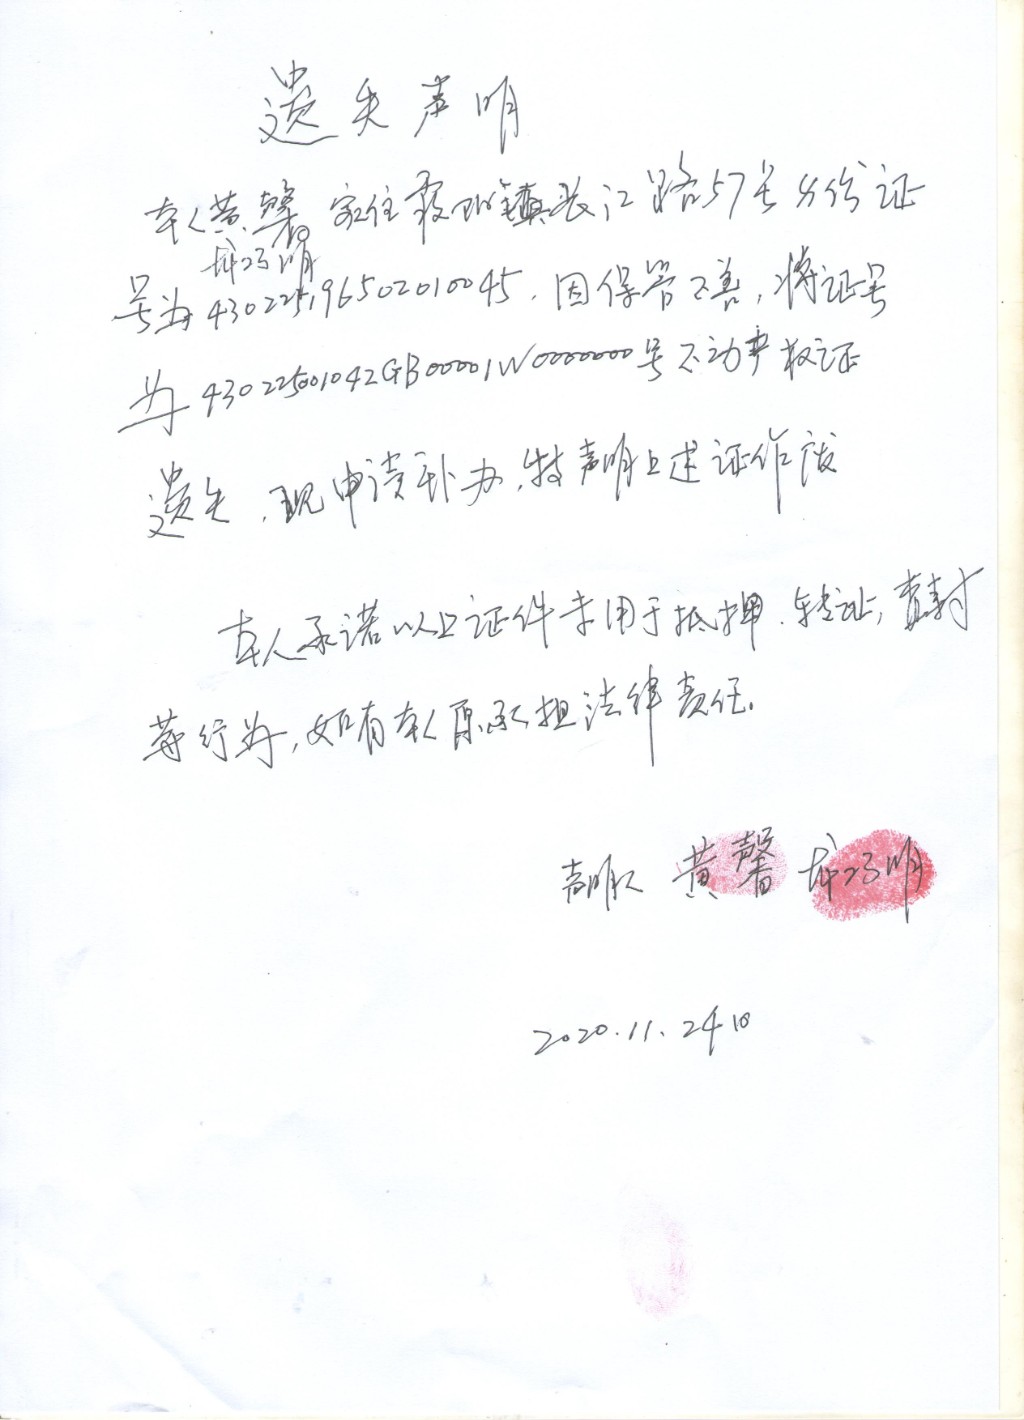 遗失声明
本人黄馨 家住霞阳镇长江路57号 身份证
号为430225196502010045，因保管不善，将证号
为430225001042GB00001W0000000号不动产权证
遗失，现申请补办，特声明上述证作废
本人承诺以上证件未用于抵押、转让，查封
等行为，如有本人愿承担法律责任。
声明人 黄馨
2020.11.24日